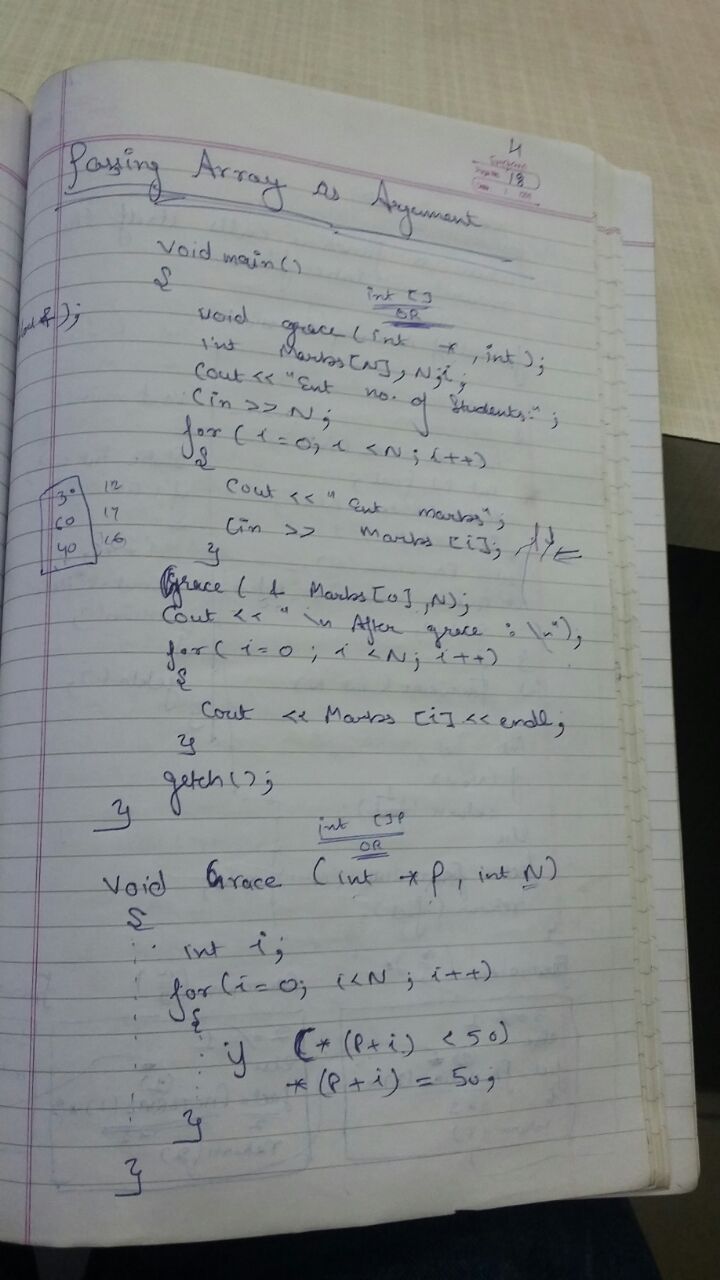 4
18
Passing Array as Argument
void main()
{
int []
OR
void grace(int *, int);
int Marks[N], N, i;
Cout << "Ent no. of Students:";
Cin >> N;
for( i=0; i <N; i++)
{
Cout << "Ent marks";
Cin >> Marks [i];
}
30 12
60 17
40 16
Grace( & Marks[0], N);
Cout << "\n After grace : \n");
for( i=0 ; i <N; i++)
{
Cout << Marks [i] << endl;
}
getch();
}
int []P
OR
Void Grace (int *P, int N)
{
int i;
for(i=0; i<N ; i++)
{
if (*(P+i) <50)
*(P+i) = 50;
}
}